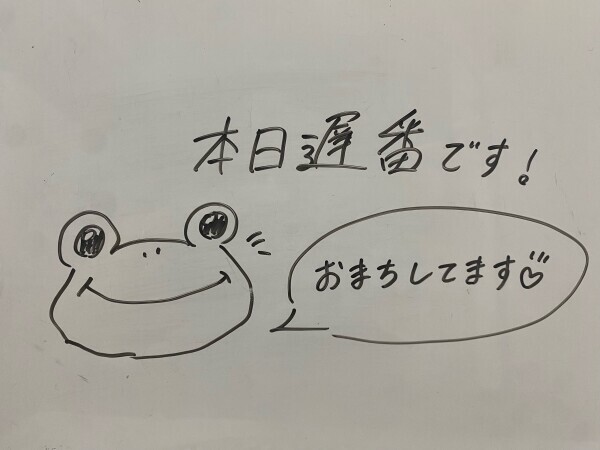 本日遅番です!
おまちしてます♡